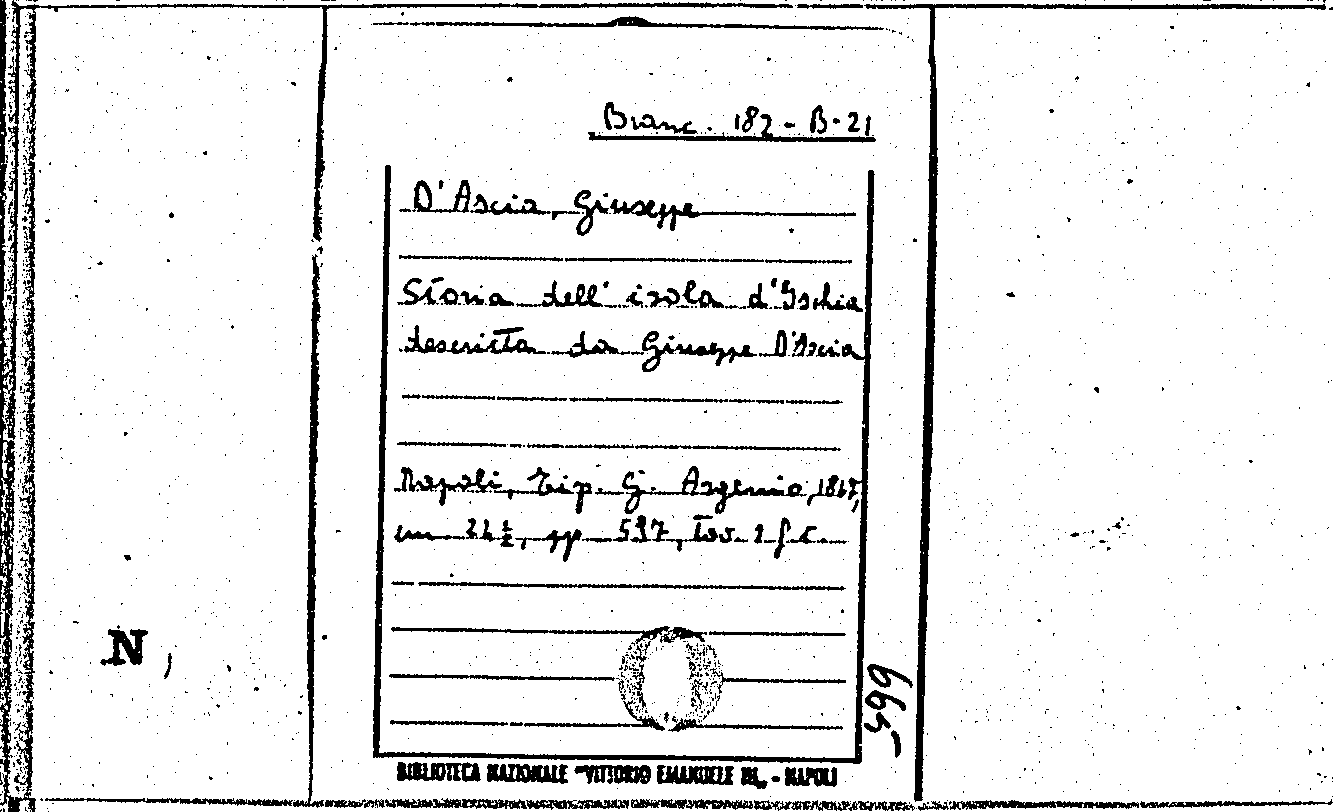 Branc. 182 - B-21
D'Ascia, Giuseppe
Storia dell' isola d'Ischia
descritta da Giuseppe D'Ascia
Napoli, Tip. G. Argenio, 1867,
cm. 24 ½, pp. 597, Tav. 2 f. t.
N,
BIBLIOTECA NAZIONALE "VITTORIO EMANUELE III„ - NAPOLI